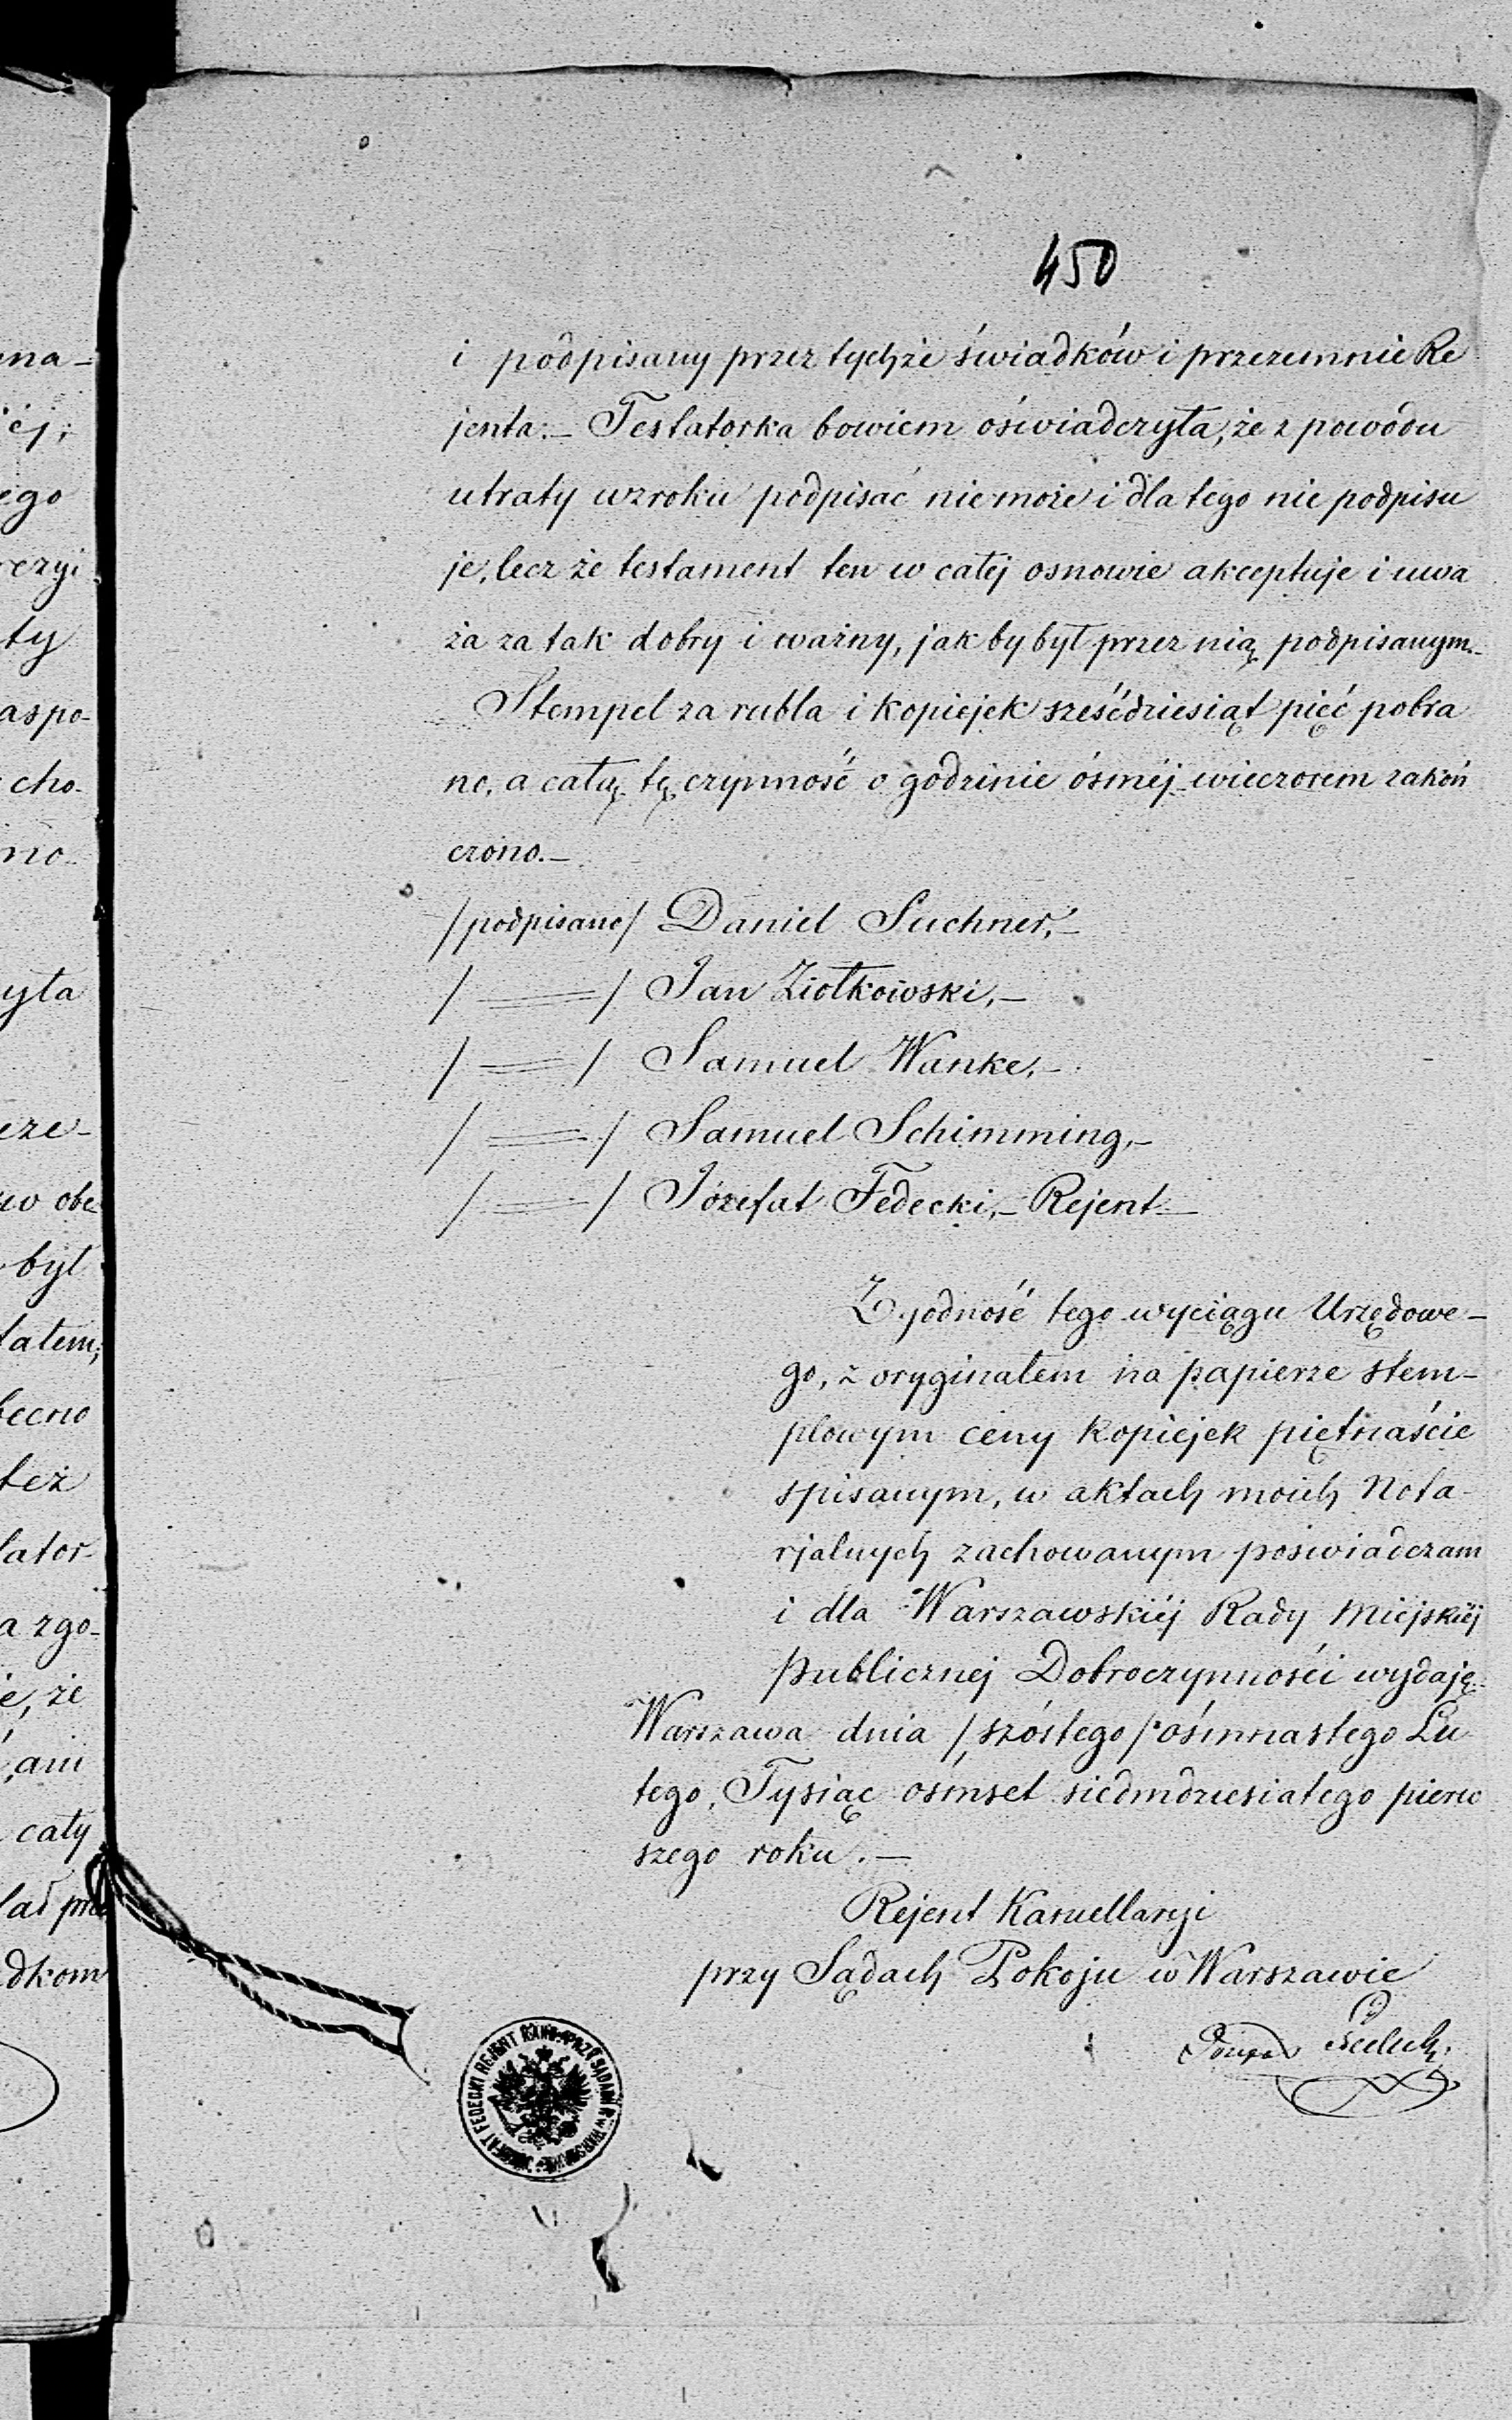 450
i podpisany przez tychże świadków i przezemnie Re
jenta.– Testatorka bowiem oświadczyła, że z powodu
utraty wzroku podpisać nie może i dla tego nie podpisu
je, lecz że testament ten w całej osnowie akceptuje i uwa
ża za tak dobry i ważny, jak by był przez nią podpisanym.–
Stempel za rubla i kopiejek sześćdziesiąt pięć pobra
no, a całą tę czynność o godzinie ósmej wieczorem zakoń
czono.–
/podpisano/ Daniel Suchner,–
/ === / Jan Ziołkowski,–
/ === / Samuel Wanke,–
/ === / Samuel Schimming,–
/ === / Józefat Fedecki,– Rejent–
Zgodność tego wyciągu Urzędowe–
go, z oryginałem na papierze stem–
plowym ceny kopiejek piętnaście
spisanym, w aktach moich Nota–
rjalnych zachowanym poświadczam
i dla Warszawskiéj Rady Miejskiéj
Publicznej Dobroczynności wydaję.–
Warszawa dnia /szóstego/ ośmnastego Lu
tego, Tysiąc ośmset siedmdziesiatego pierw
szego roku.–
Rejent Kancellaryi
przy Sądach Pokoju w Warszawie
Józefat Fedecki
JÓZEFAT FEDECKI REJENT KANC. PRZY SĄDACH P. w WARSZAWIE
ona–
iéj;
ego
rezyi
ty
aspo–
cho–
no–
yła
eze–
wo obe
był
tatem;
becno
też
tator–
a zgo–
ie, że
, ani
cały
dkom